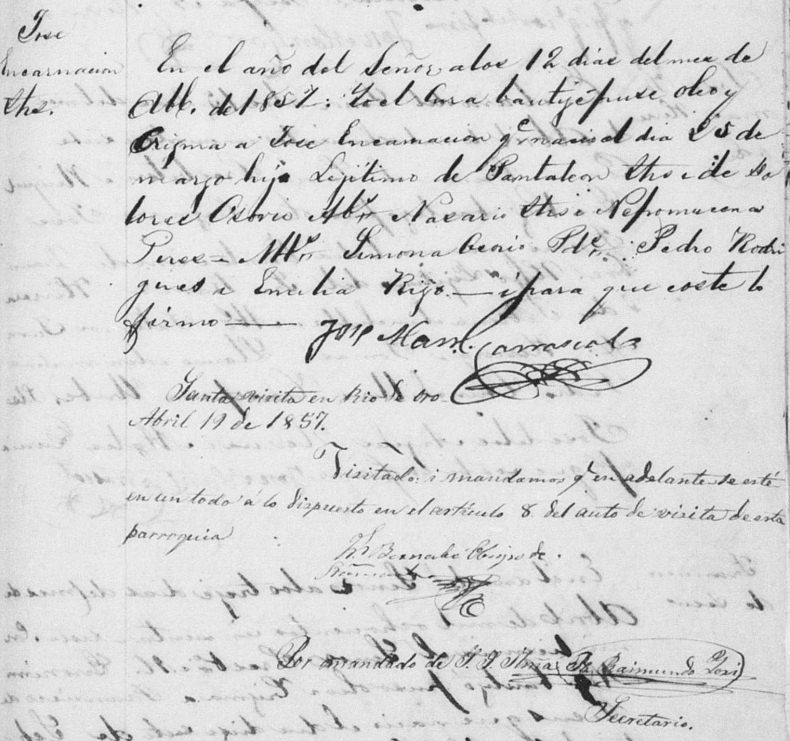 Jose
Encarnacion
Shs.
En el año del Señor, a los 12 dias del mes de
Abl. de 1857: Yo el Cura bautijé puse oleo y
Crigma a Jose Encarnacion qe. nacio el dia 25 de
marzo hijo Lejitimo de Pantaleon Shs i de Do
lores Osorio Abs. Nasario Shs i Nepomucena
Peres — Mtrs. Simona Pds. Pedro Rodri
gues i Emilia — i para que coste lo
firmo —
Jose Mam. Carrascal
Santa visita en Rio de oro
Abril 19 de 1857.
Visitado: i mandamos qe en adelante se esté
en un todo á lo dispuesto en el artículo 8 del auto de visita de esta
parroquia
Fr. Bernabé Obispo de
Por mandado de S. S. Ilma. Raimundo
Secretario.